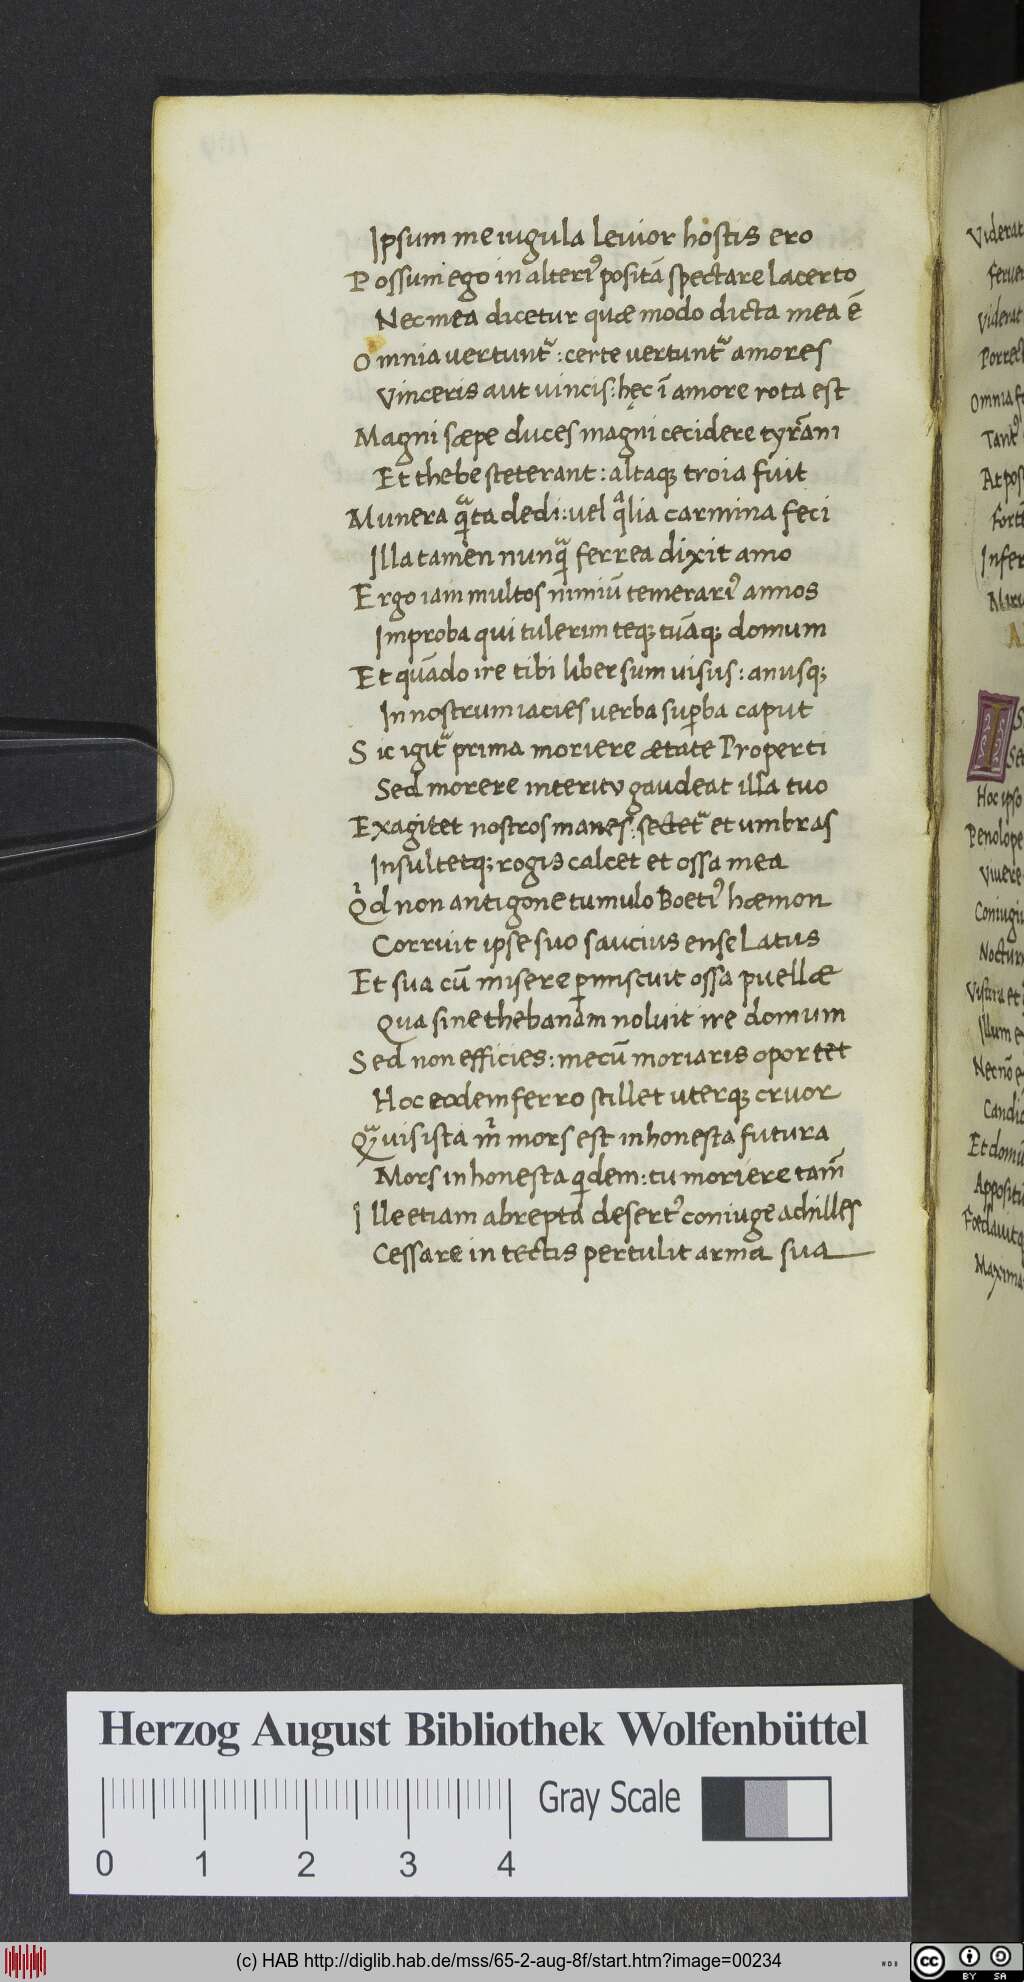 Ipsum me iugula levior hostis ero
Possum ego in alteriꝰ positā spectare lacerto
Nec mea dicetur quæ modo dicta mea ē
Omnia vertuntᷣ : certe vertuntᷣ amores
Vinceris aut vincis : hęc ī amore rota est
Magni sæpe duces magni cecidere tyrāni
Et thebe steterant : altaqꝫ troia fuit
Munera qͣ̄ta dedi : vel qͣlia carmina feci
Illa tamen nunqͣ̄ ferrea dixit amo
Ergo iam multos nimiū temerariꝰ annos
Improba qui tulerim teqꝫ tuāqꝫ domum
Et quādo ire tibi liber sum visus : anusqꝫ
In nostrum iacies verba suꝑba caput
Sic igitᷣ prima moriere ætate Properti
Sed morere interitu gaudeat illa tuo
Exagitet nostros manes : sectetᷣ et umbras
Insultetqꝫ rogis calcet et ossa mea
Qͥd non antigone tumulo Boetiꝰ hæmon
Corruit ipse suo saucius ense Latus
Et sua cū misere ꝑmiscuit ossa puellæ
Qua sine thebanam noluit ire domum
Sed non efficies : mecū moriaris oportet
Hoc eodem ferro stillet uterqꝫ cruor
Qͣ̄vis ista mͥ mors est inhonesta futura
Mors inhonesta qͥdem : tu moriere tam̄
Ille etiam abrepta desertꝰ coniuge achilles
Cessare in tectis pertulit arma sua
Viderat
Viderat
Porrect
Omnia
At pos
Infer
I
Hoc ipso
Penolope
Vivere
Coniugi
Noctur
Illum
Candi
Et domū
Appositū
Maxima
Herzog August Bibliothek Wolfenbüttel
Gray Scale
0 1 2 3 4
(c) HAB http://diglib.hab.de/mss/65-2-aug-8f/start.htm?image=00234
cc BY SA